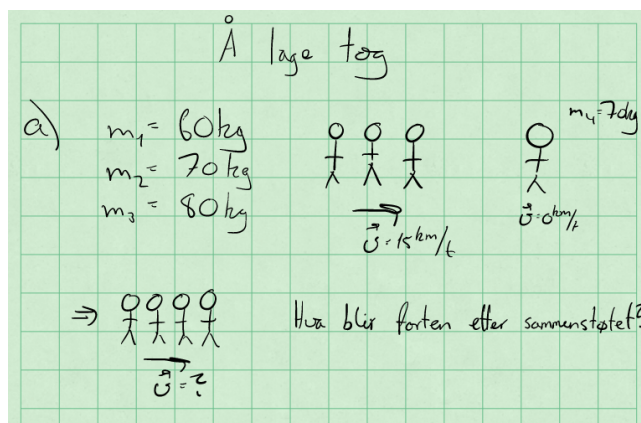 Å lage tog
a)
m₁ = 60kg
m₂ = 70kg
m₃ = 80kg
v⃗ = 15 km/t
m₄ = 70kg
v⃗ = 0 km/t
⇒
v⃗ = ?
Hva blir farten etter sammenstøtet?